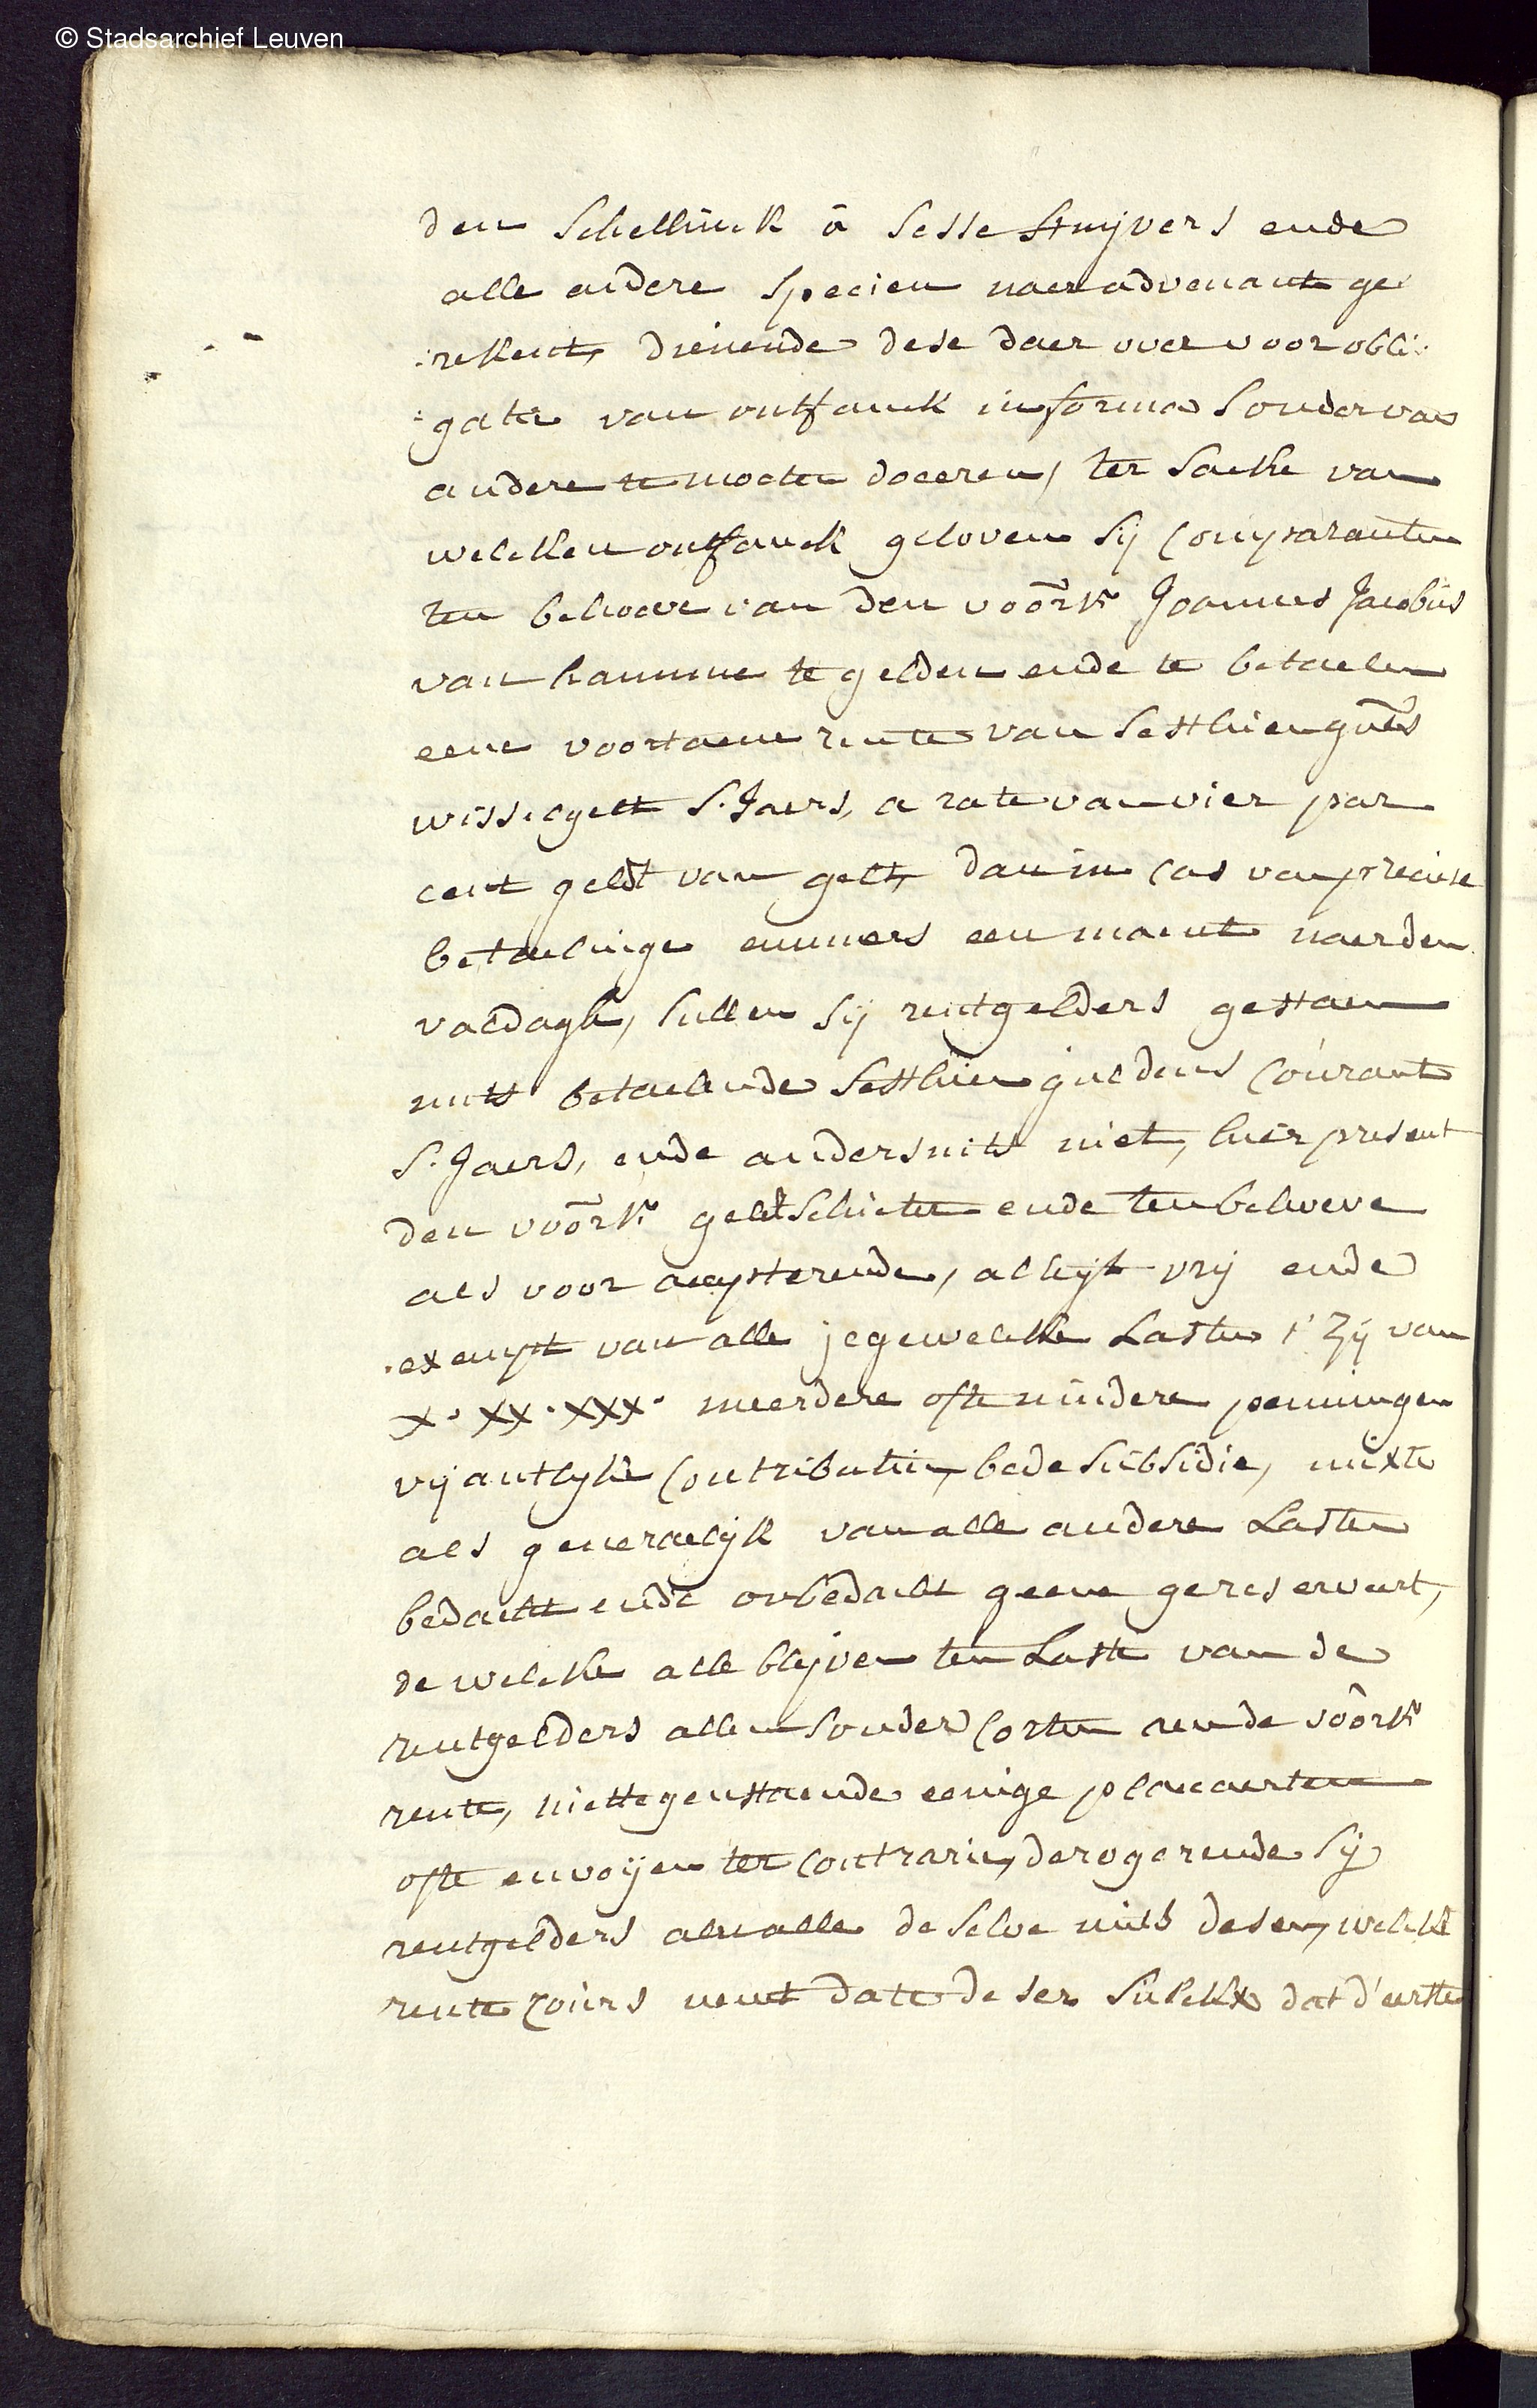 © Stadsarchief Leuven
den Schellinck â Sesse Stuijvers ende
alle andere specien naer advenant ge
:rekent, dienende dese daer over voor obli:
:gatie van ontfanck in forma sonder van
andere te moeten doceren, ter saecke van
welcken ontfanck geloven sij Comparanten
ten behoeve van den voorñ Joannes Jacobus
van hamme te gelden ende te betaelen
eene voortaene rente van Sesthien guls
wisselgelt S.Jaers, a rate van vier par
cent geldt van gelt, dan in Cas van precise
betaelinge emmers een maent naer den
valdagh, sullen sij rentgelders gestaen
mits betaelende Sesthien guldens Courant
S.Jaers, ende andersints niet, hier present
den voorñ geltschieter ende ten behoeve
als voor accepterende, altijt vrij ende
exempt van alle jegewelcke Lasten t'Zij van
X. XX. XXX. meerdere ofte mindere penningen
vijantlyke Contributien, bede subsidie, mixte
als generaelijk van alle andere Lasten
bedacht ende onbedacht geene gereserveert,
de welcke alle blijven ten Laste van de
rentgelders alleen sonder Corten aen de voorñ
rente, niettegenstaende eenige placcaerten
ofte envoijen ter contrarie, derogerende sij
rentgelders aen alle de selve mits desen, welcke
rente cours neemt date deser sulckx dat d'eerste